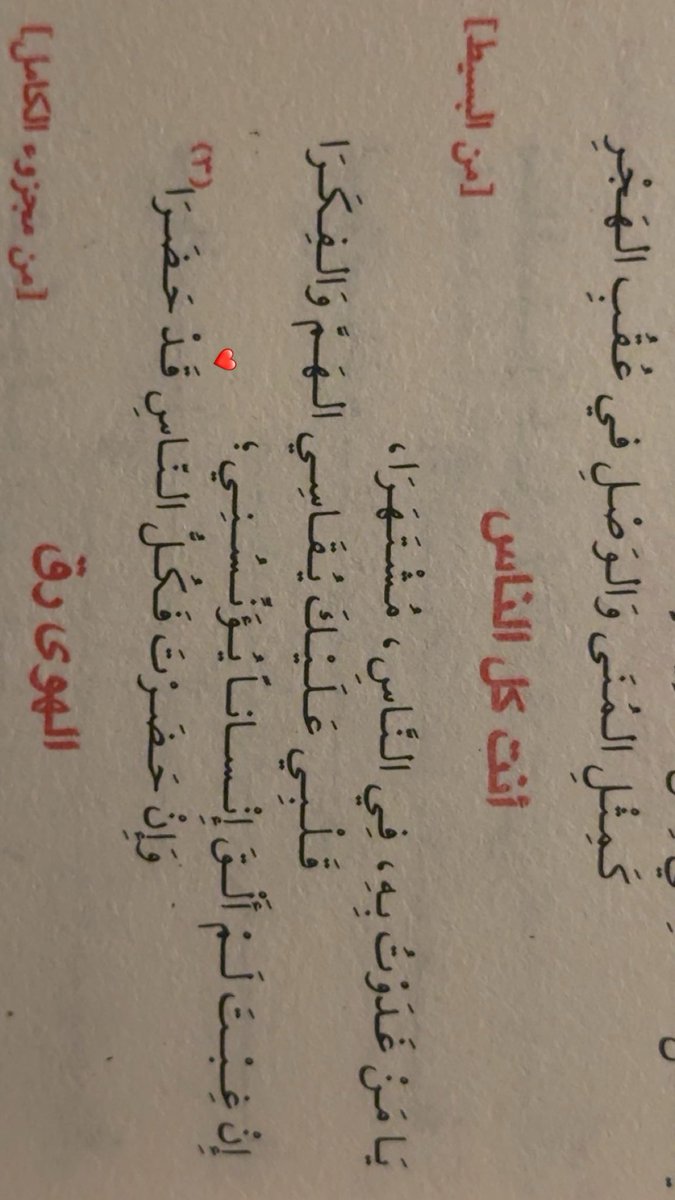 كَمِثْلِ المُنَى وَالوَصْلِ فِي عُقُبِ الهَجْرِ
أنت كل الناس
[من البسيط]
يَا مَنْ غَدَوْتُ بِهِ، فِي النَّاسِ، مُشْتَهَرَا،
قَلْبِي عَلَيْكَ يُقَاسِي الهَمَّ وَالفِكَرَا
إِنْ غِبْتَ لَمْ أَلْقَ إِنْساناً يُؤَنِّسُنِي؛
وَإِنْ حَضَرْتَ فَكُلُّ النَّاسِ قَدْ حَضَرَا (٣)
الهوى رق
[من مجزوء الكامل]